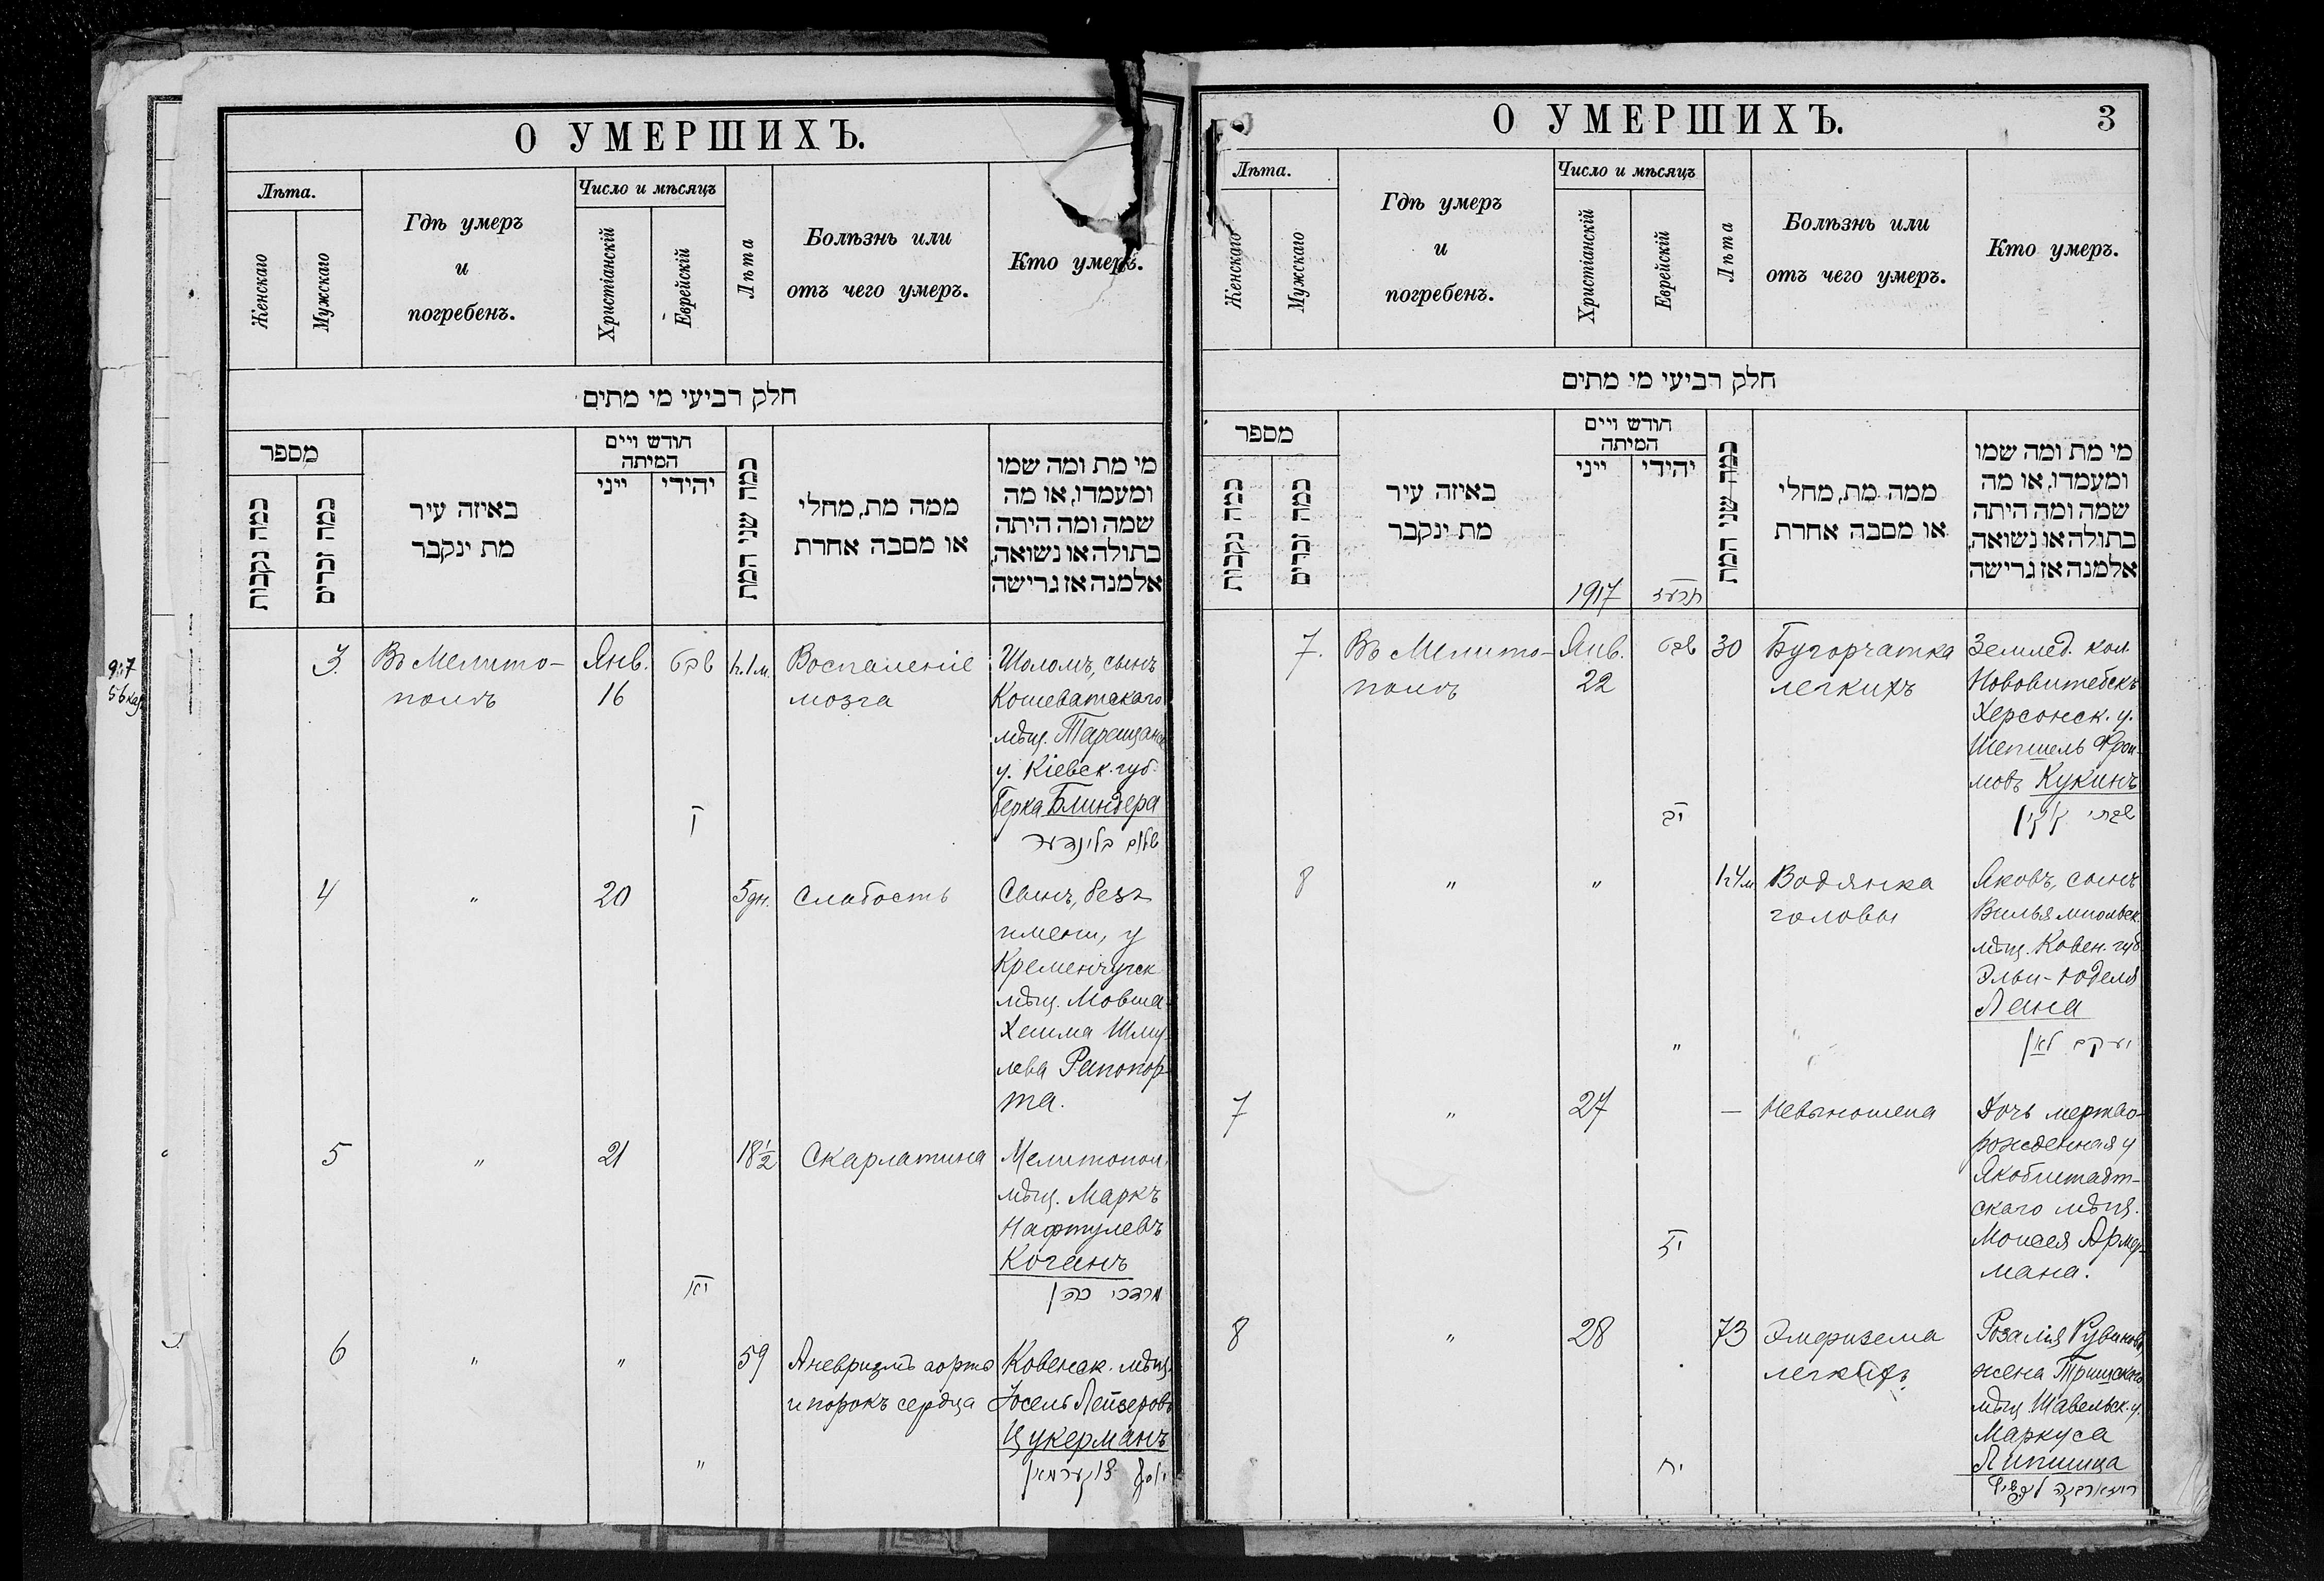 О УМЕРШИХЪ.
Лѣта.
Женскаго
Мужскаго
Гдѣ умеръ
и
погребенъ.
Число и мѣсяцъ
Христіанскій
Еврейскій
Лѣта
Болѣзнь или
отъ чего умеръ.
Кто умеръ.
חלק רביעי מי מתים
מספר
כמה נקבות
כמה זכרים
באיזה עיר
מת ינקבר
חודש ויים
המיתה
ייני
יהודי
כמה שני המת
ממה מת, מחלי
או מסבה אחרת
מי מת ומה שמו
ומעמדו, או מה
שמה ומה היתה
בתולה או נשואה,
אלמנה אז גרישה
3.
Въ Мелито-
полѣ
Янв.
16
שבט
1г.1м.
Воспаленіе
мозга
Шоломъ, сынъ
Кошеватскаго
мѣщ. Таращанск
у. Кіевск. губ.
Берка Блиндера
י
שלום בלינדער
4
"
20
5дн.
Слабость
Сынъ, безъ
имени, у
Кременчугск
мѣщ. Мовша-
Хаима Шму-
лева Рапопор-
та.
5
"
21
18½
Скарлатина
Мелитопол.
мѣщ. Маркъ
Нафтулевъ
Коганъ
יא
מרדכי כהן
6
"
"
59
Аневризмъ аорты
и порокъ сердца
Ковенск. мѣщ.
Іосель Лейзеровъ
Цукерманъ
"
יוסף צוקערמאן
О УМЕРШИХЪ.
3
Лѣта.
Женскаго
Мужскаго
Гдѣ умеръ
и
погребенъ.
Число и мѣсяцъ
Христіанскій
Еврейскій
Лѣта
Болѣзнь или
отъ чего умеръ.
Кто умеръ.
חלק רביעי מי מתים
מספר
כמה נקבות
כמה זכרים
באיזה עיר
מת ינקבר
חודש ויים
המיתה
ייני
יהודי
1917
תרעז
כמה שני המת
ממה מת, מחלי
או מסבה אחרת
מי מת ומה שמו
ומעמדו, או מה
שמה ומה היתה
בתולה או נשואה,
אלמנה אז גרישה
7.
Въ Мелито-
полѣ
Янв.
22
שבט
30
Бугорчатка
легкихъ
Землед. кол.
Нововитебскъ
Херсонск. у.
Шепшель Фрои-
мовъ Кукинъ
יב
שבתי קוקין
8
"
"
1г.4м
Водянка
головы
Яковъ, сынъ
Вильямпольск
мѣщ. Ковен. губ
Эльи-Юделя
Лана
"
יעקב לאן
7
"
27
—
Невыношена
Дочь мертво-
рожденная у
Якобштадт-
скаго мѣщ.
Моисея Армер-
мана.
יז
8
"
28
73
Эмфизема
легкихъ
Розалія Рувинова,
жена Тришскаго
мѣщ. Шавельск. у.
Маркуса
Липшица
יח